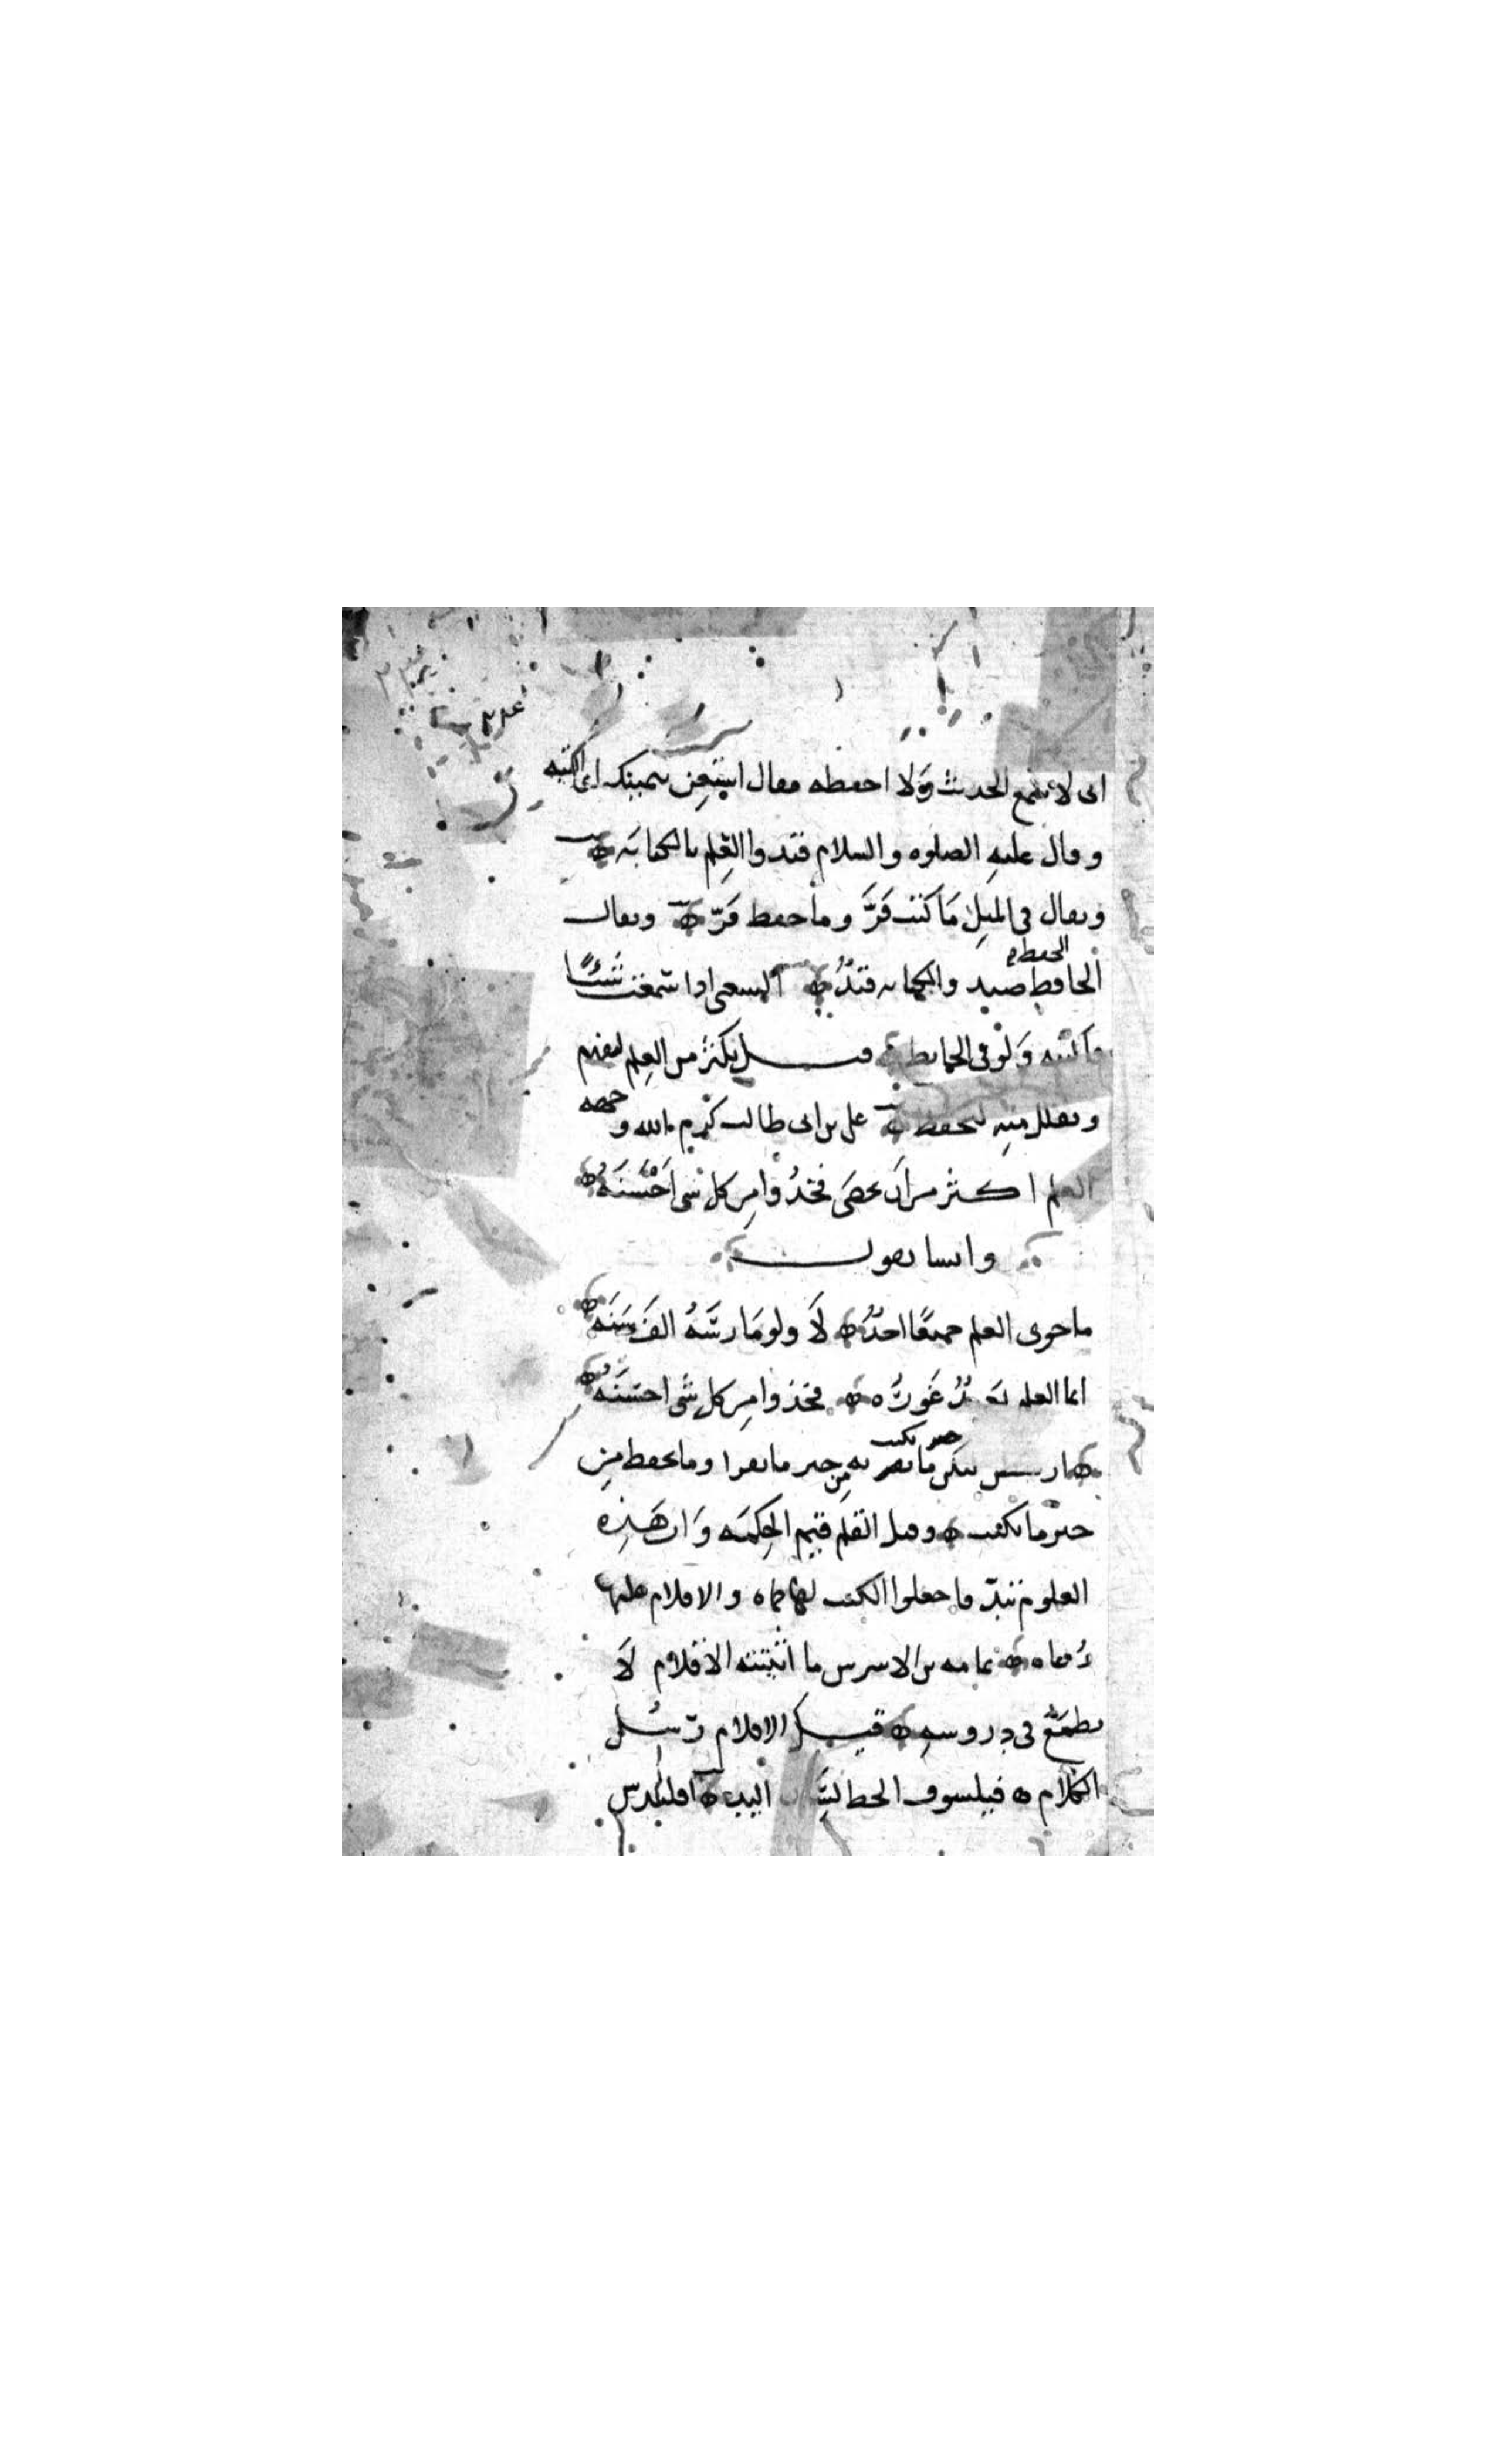 انى لا سمع الحديث ولا احفظه فقال استعن بيمينك اى اكتبه
وقال عليه الصلوه والسلام قيدوا العلم بالكتابة
ويقال فى المثل ما كتب قر وما حفظ فر ويقال
الحفظ
الحافظ صيد والكتابه قيد الشعبى اذا سمعت شيئا
فاكتبه ولو فى الحايط قيل يكثر من العلم ليفهم
ويقلل منه ليحفظ على بن ابى طالب كرم الله وجهه
العلم اكثر من ان يحصى فخذوا من كل شى احسنه
وانسا يقول
ما حوى العلم جميعا احد لا ولو مارسه الف سنه
انما العلم غوره فخذوا من كل شى احسنه
خير ما تكتب
من خير ما تقرا وما تحفظ من
خير ما تكتب وقيل القلم قيم الحكمه وان هذه
العلوم تند فاجعلوا الكتب لها حماه والاقلام عليها
رعاه ثمامه بن الاشرس ما اثبتته الاقلام لا
يطمع فى دروسه قيل الاقلام رسل
الكلام فيلسوف الخط لسان اليد اقليدس